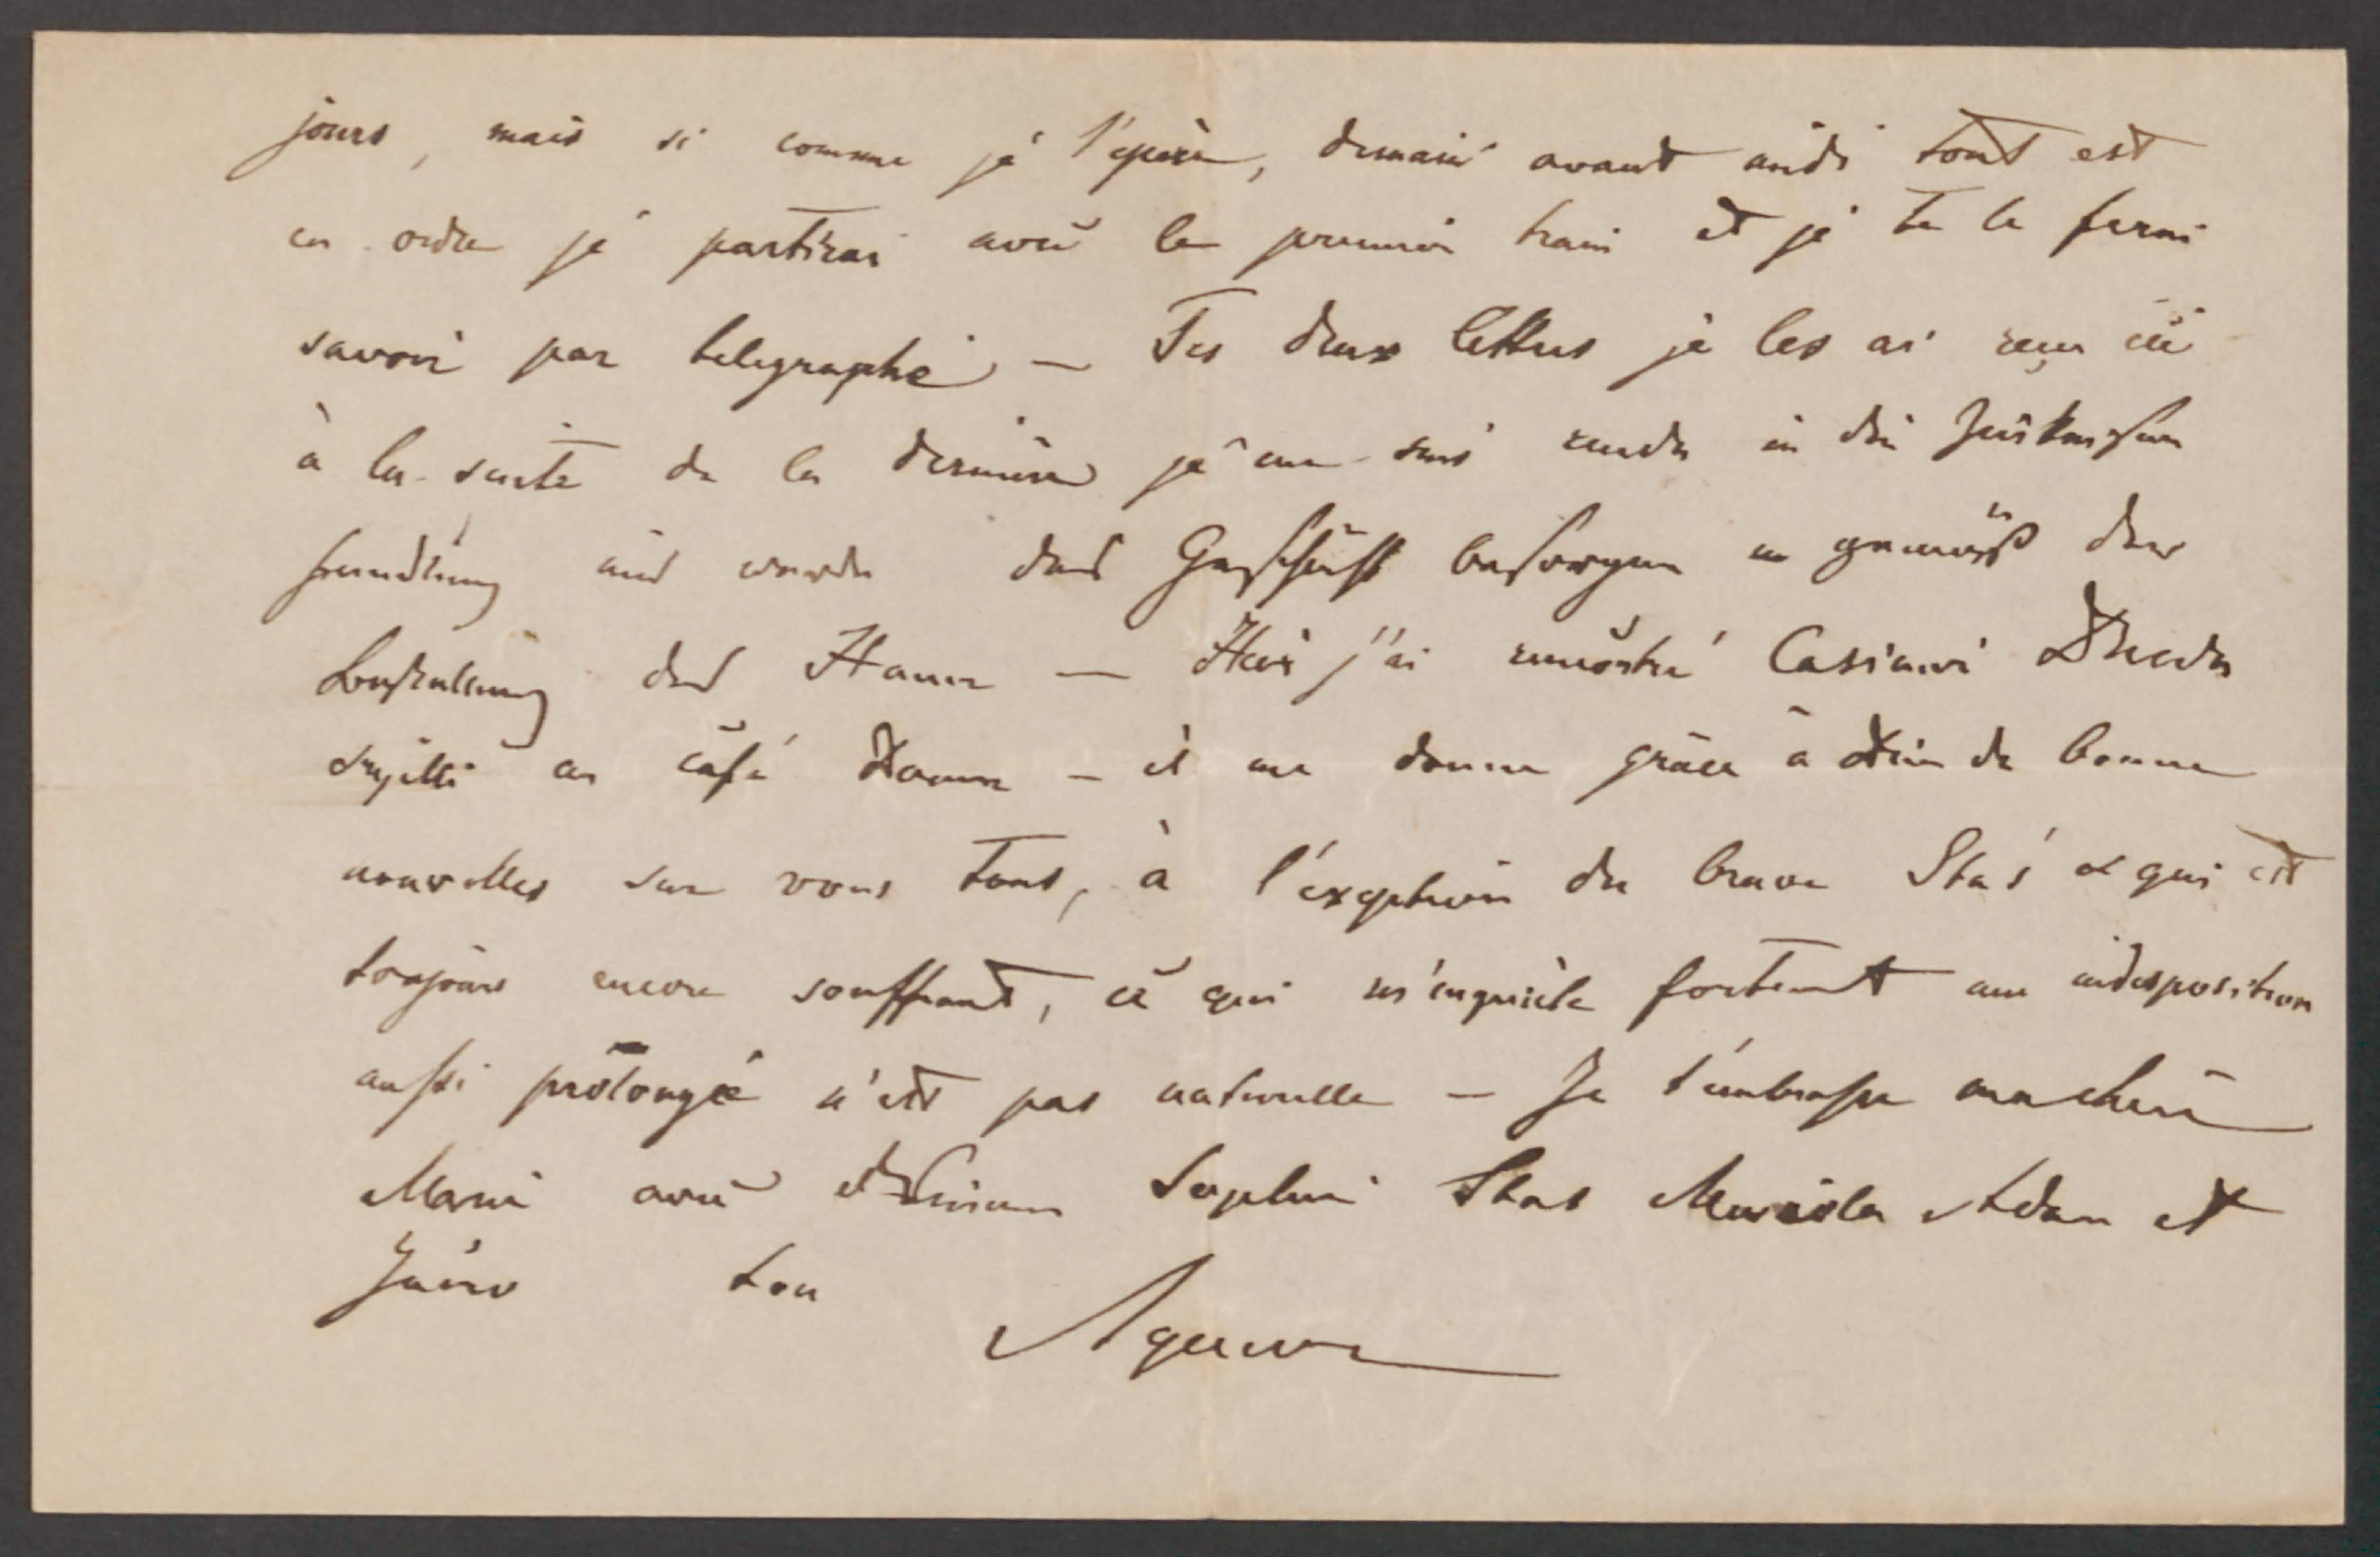 jours, mais si comme je l'epère, demain avant midi tout est
en ordre je partirai avec le premier train et je te le ferai
savoir par telegraphe — Tes deux lettres je les ai reçu ici
à la suite de la dernière je me suis rendu in die
handlung und werde das Geschäft besorgen gemäß der
Bestellung des Hauer — Hier j'ai rencontré Casimir
au café Daum — il me donne grâce à Dieu de bonne
nouvelles sur vous tous, à l'exception du brave Staś qui est
toujours encore souffrant, ce qui m'inquiète fortement une indisposition
aussi prolongée n'est pas naturelle — Je t'embrasse ma chère
Marie avec Sophie Stas Adam et
ton